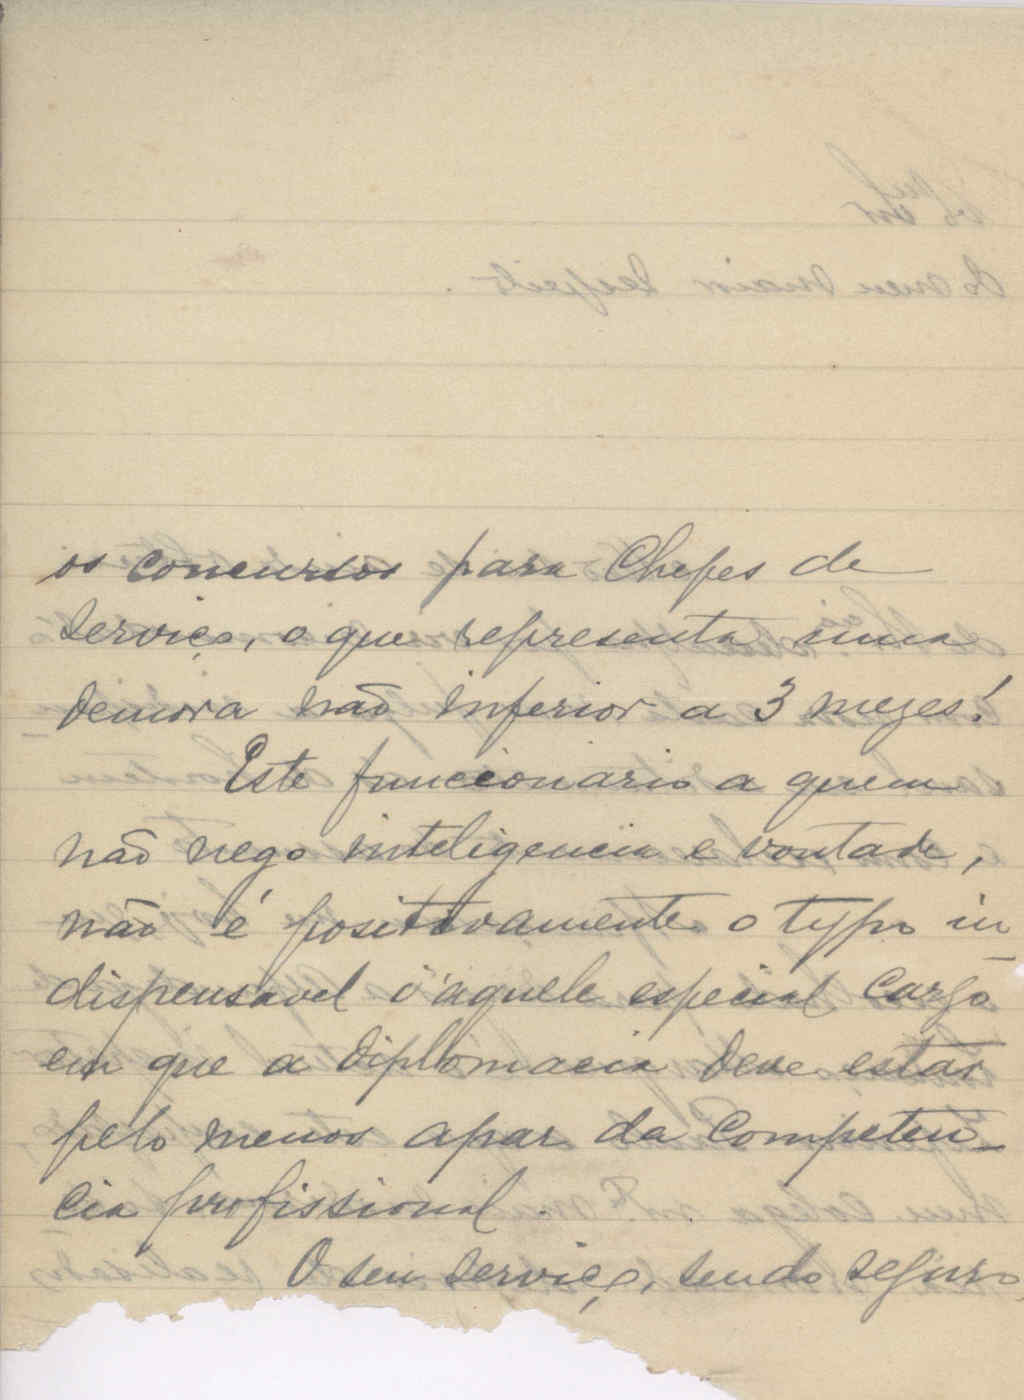 os concursos para Chefes de
serviço, o que representa uma
demora não inferior a 3 mezes!
Este funccionario a quem
não nego inteligencia e vontade,
não é positivamente o typo in
dispensavel áquele especial cargo
em que a diplomacia deve estar
pelo menos apar da competen-
cia profissional.
O seu serviço, sendo seguro,